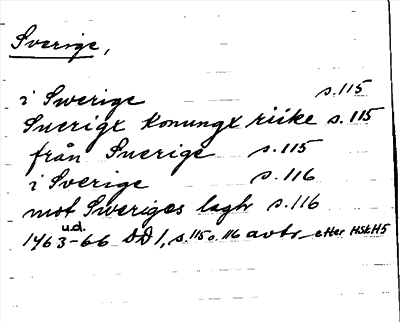 Sverige,
i Swerige s.115
Suerigx konungx riike s.115
från Suerige s.115
i Sverige s.116
mot Sweriges lagh s.116
u.d.
1463-66 DD 1, s.115 o. 116 avtr. efter HSkH5